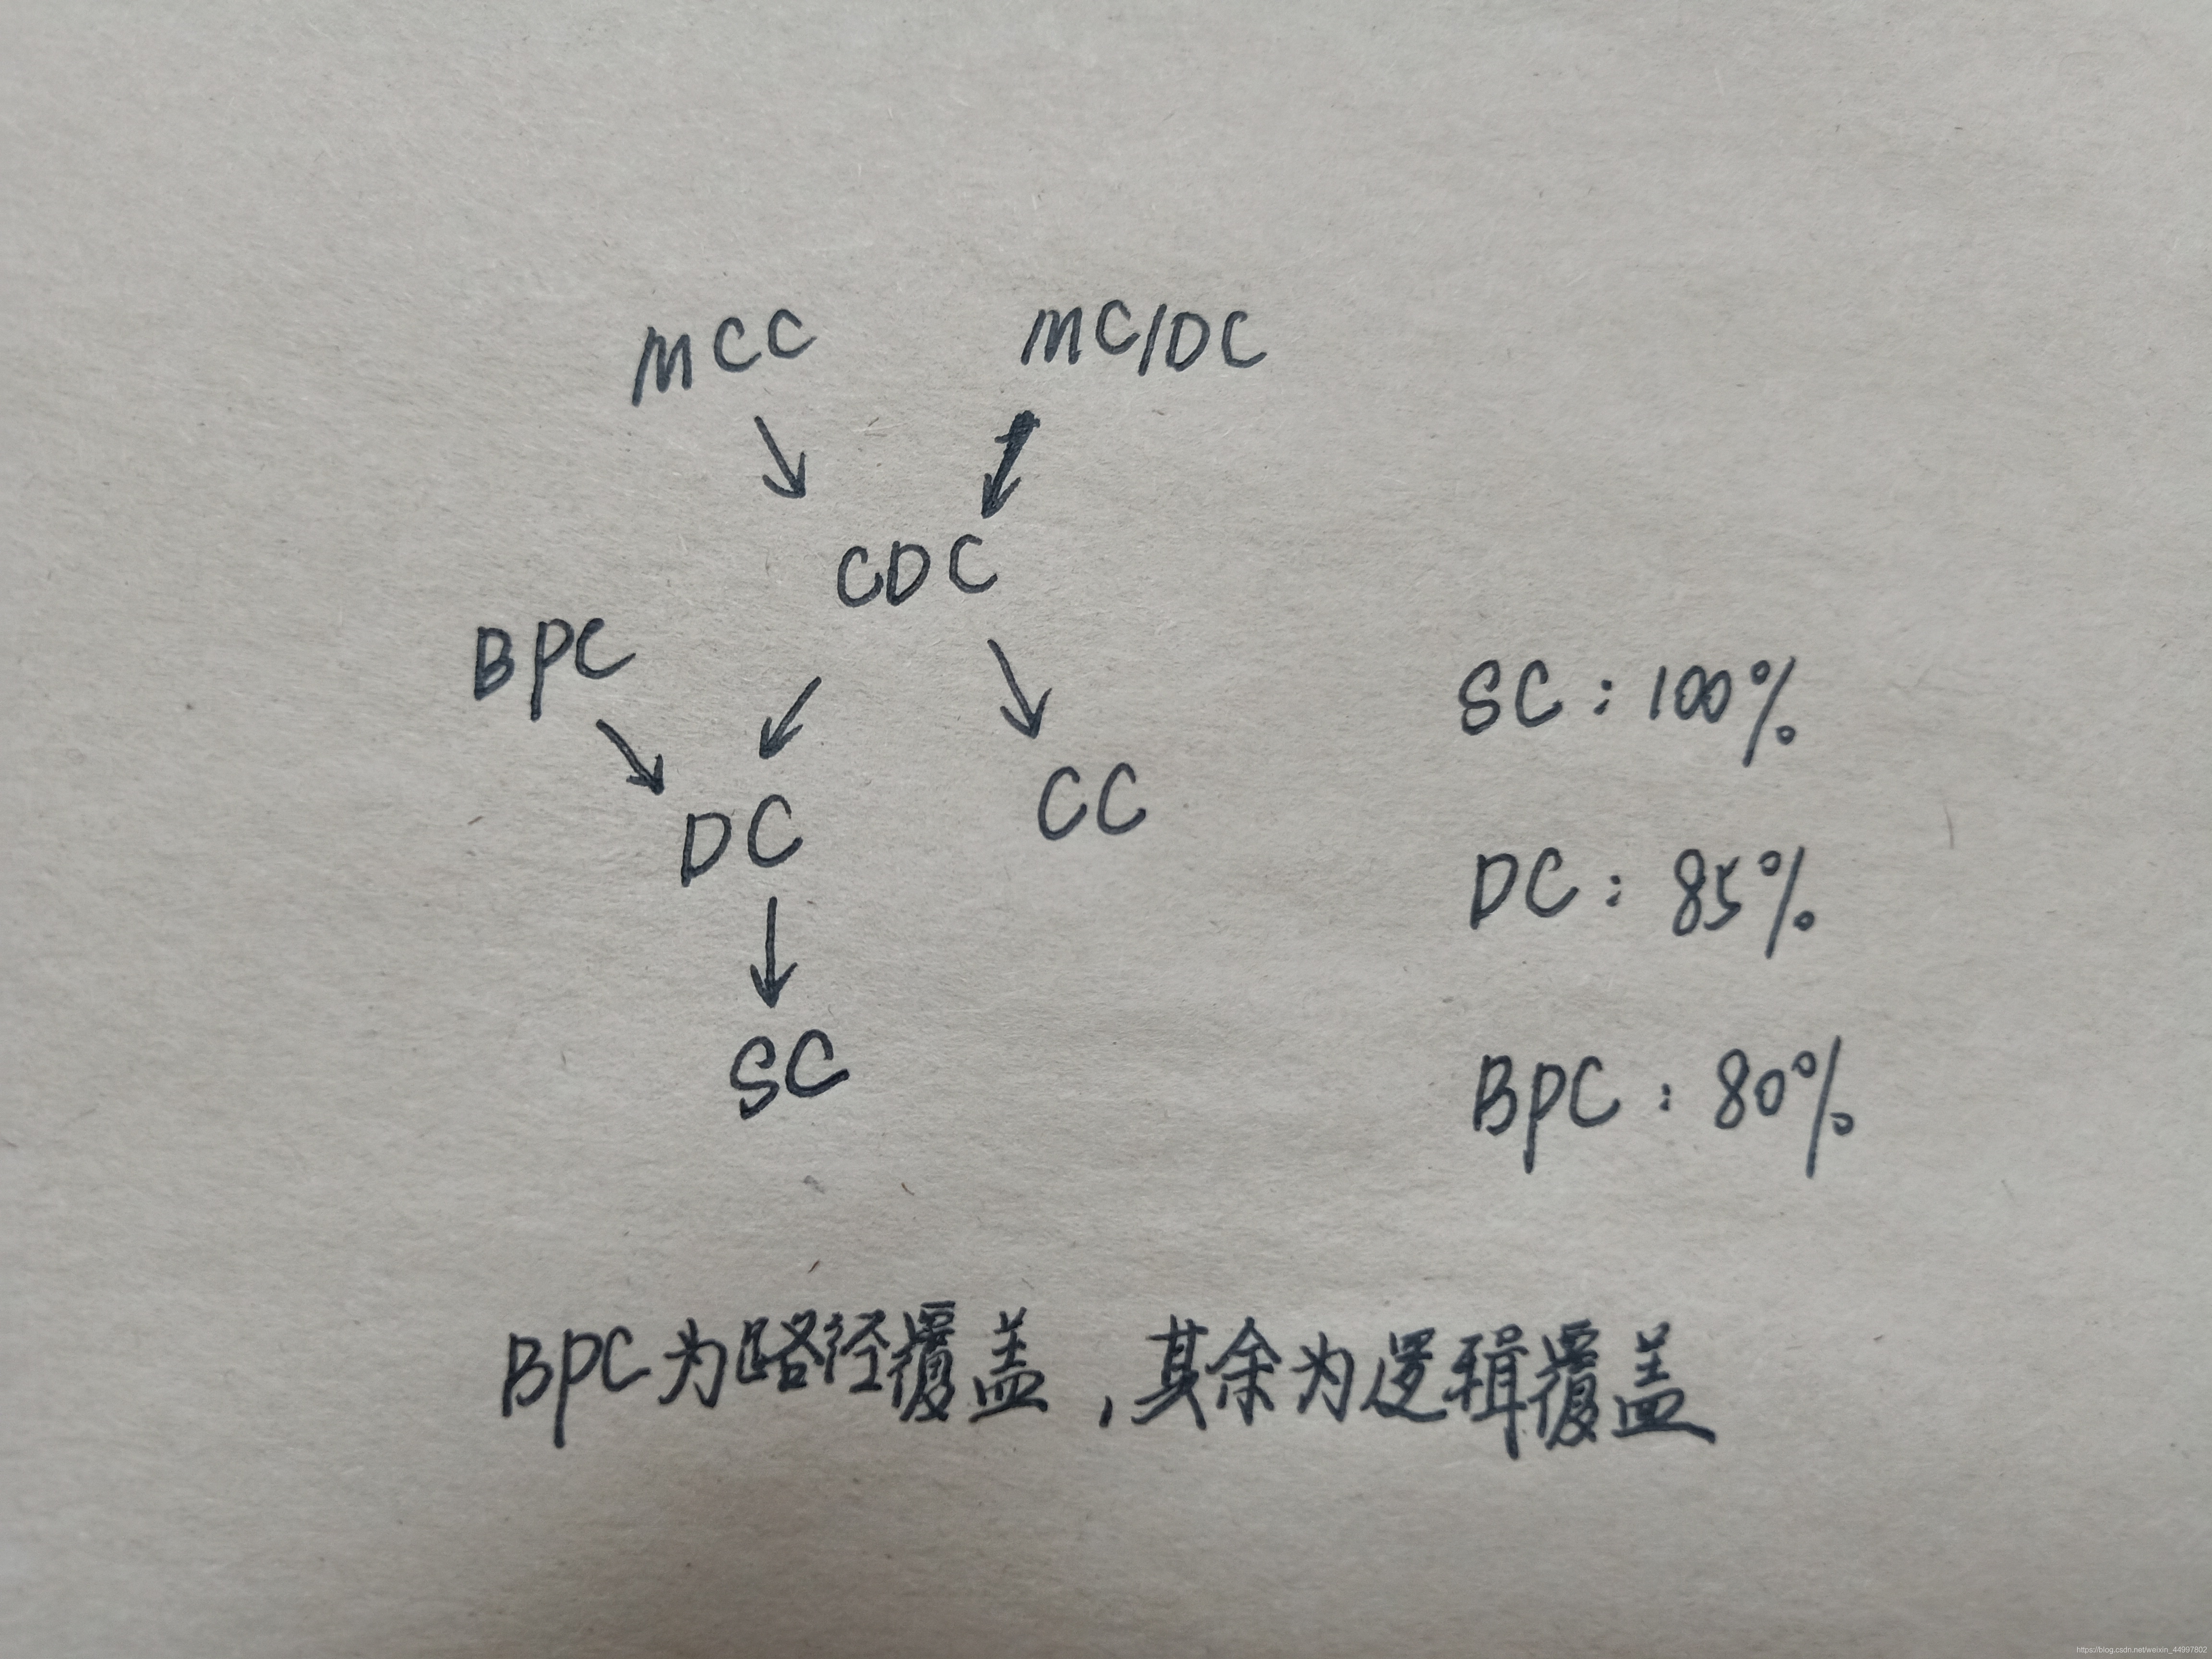 MCC MC/DC
CDC
BPC
SC：100%
DC CC
DC：85%
SC
BPC：80%
BPC为路径覆盖，其余为逻辑覆盖
https://blog.csdn.net/weixin_44997802